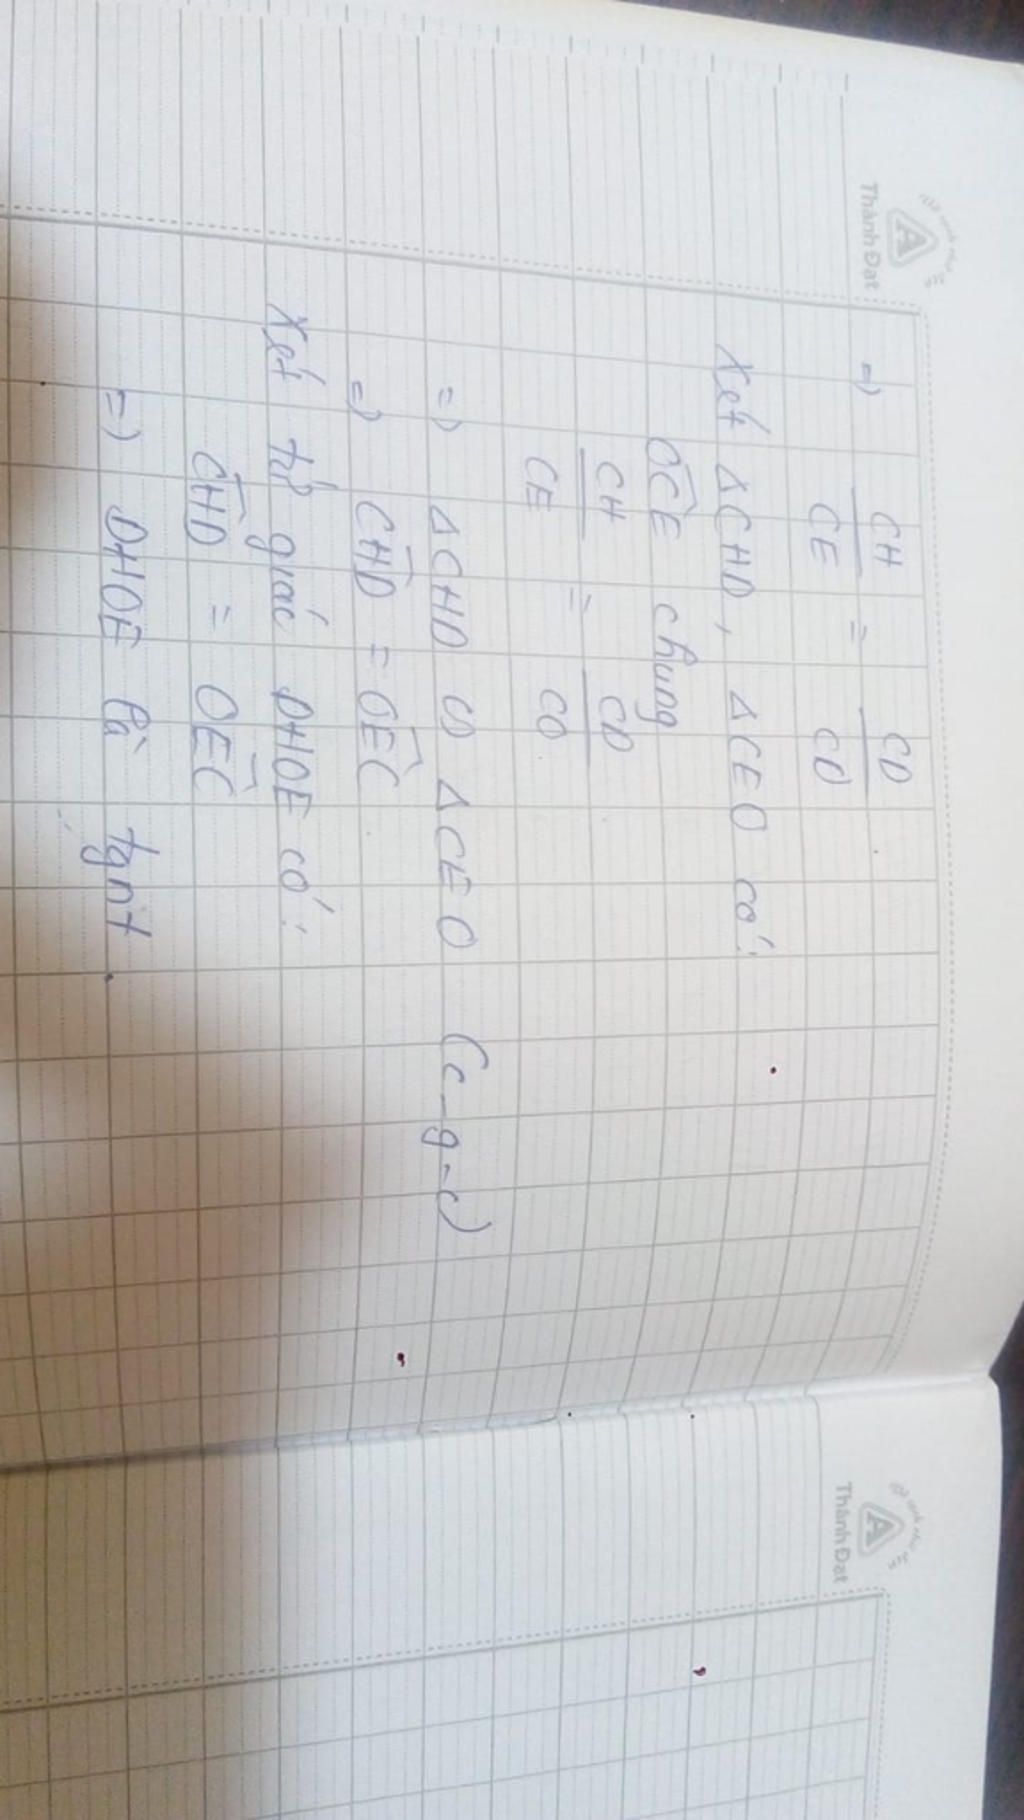 Thành Đạt
=> CH/CE = CD/CO
Xét ΔCHD, ΔCEO có:
OCE chung
CH/CE = CD/CO
=> ΔCHD ∽ ΔCEO (c-g-c)
=> CHD = OEC
Xét tứ giác DHOE có:
CHD = OEC
=> DHOE là tgnt
Thành Đạt